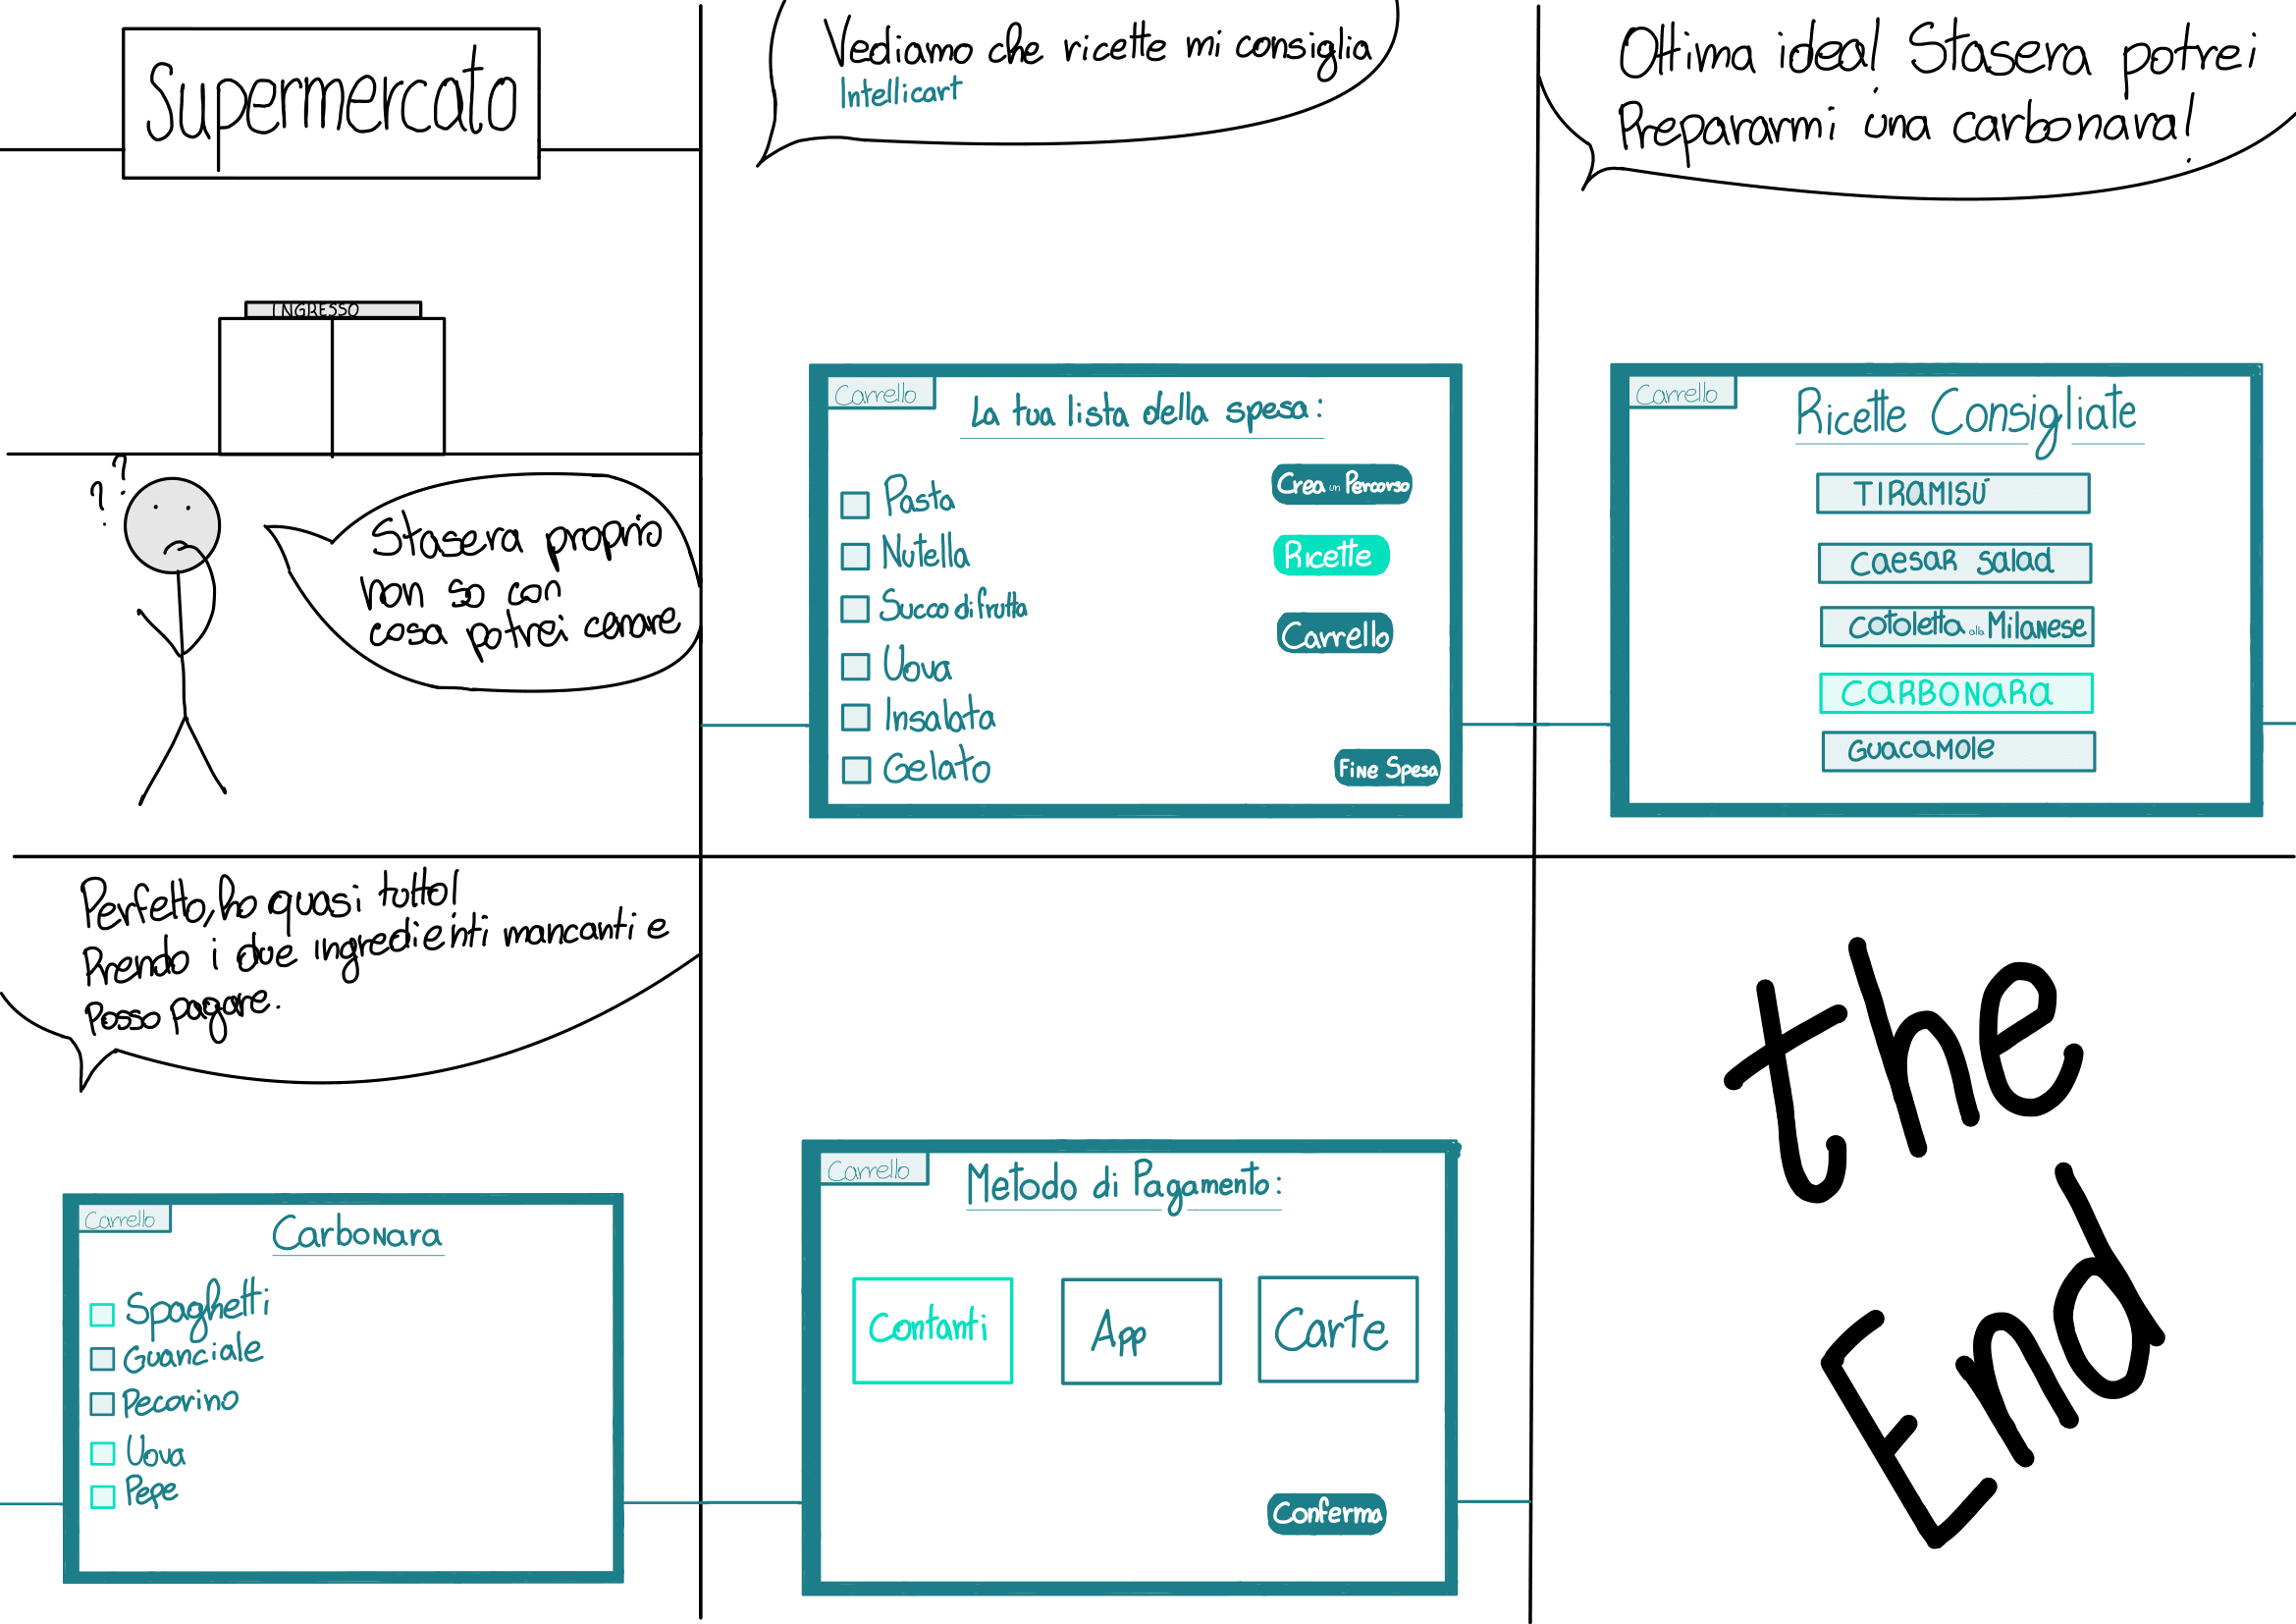 Supermercato
INGRESSO
? ?
Stasera proprio
non so con
cosa potrei cenare
Vediamo che ricette mi consiglia
Intellicart
Carrello
La tua lista della spesa:
Pasta
Nutella
Succo di frutta
Uova
Insalata
Gelato
Crea un Percorso
Ricette
Carrello
Fine Spesa
Ottima idea! Stasera potrei
Prepararmi una carbonara!
Carrello
Ricette Consigliate
TIRAMISÙ
Caesar Salad
Cotoletta alla Milanese
CARBONARA
Guacamole
Perfetto, ho quasi tutto!
Prendo i due ingredienti mancanti e
posso pagare.
Carrello
Carbonara
Spaghetti
Guanciale
Pecorino
Uova
Pepe
Carrello
Metodo di Pagamento:
Contanti
App
Carte
Conferma
the
End